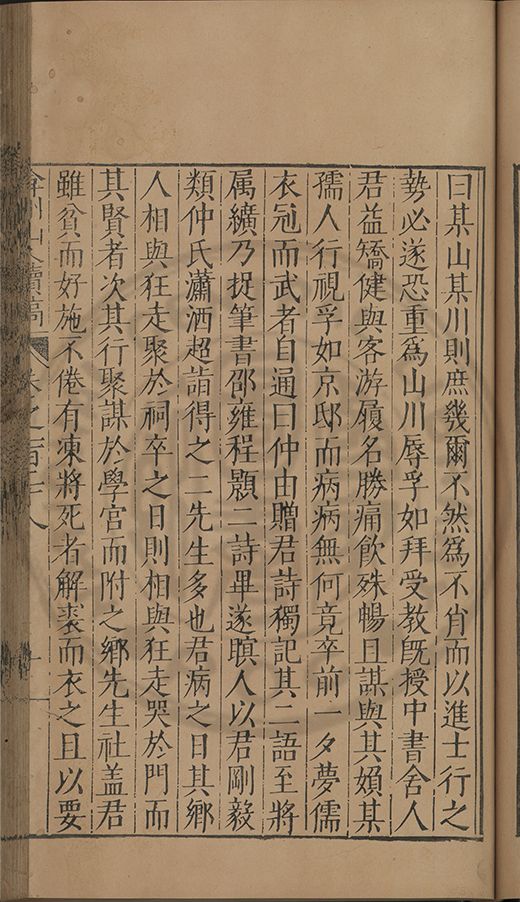 曰某山某川則庶幾爾不然為不肖而以進士行之
勢必遂恐重為山川辱孚如拜受教旣授中書舍人
君益矯健與客游履名勝痛飲殊暢且謀與其嬪某
孺人行視孚如京邸而病病無何竟卒前一夕夢儒
衣冠而武者自通曰仲由贈君詩獨記其二語至將
属纊乃捉筆書邵雍程顥二詩畢遂瞑人以君剛毅
類仲氏瀟洒超詣得之二先生多也君病之日其鄉
人相與狂走聚於祠卒之日則相與狂走哭於門而
其賢者次其行聚謀於學官而附之鄉先生社盖君
雖貧而好施不倦有凍將死者解裘而衣之且以要
弇州山人續稿 卷之一百十八